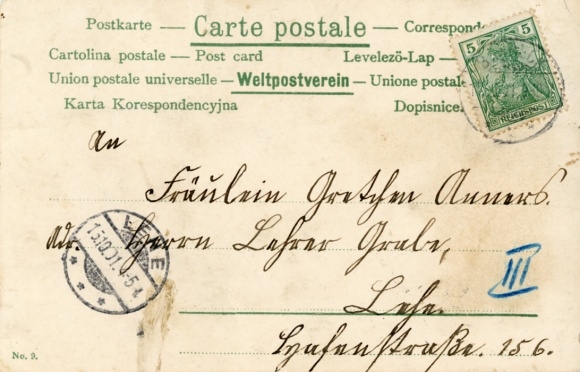 Postkarte — Carte postale — Correspond
Cartolina postale — Post card Levelező-Lap —
Union postale universelle — Weltpostverein — Unione postale
Karta Korespondencyjna Dopisnice.
5 5
REICHSPOST
An
Fräulein Gretchen Anners.
Adr. Herrn Lehrer Grabe,
III
LEHE
13.10.01. 4-5
Lehe.
Hafenstraße. 156.
No. 9.